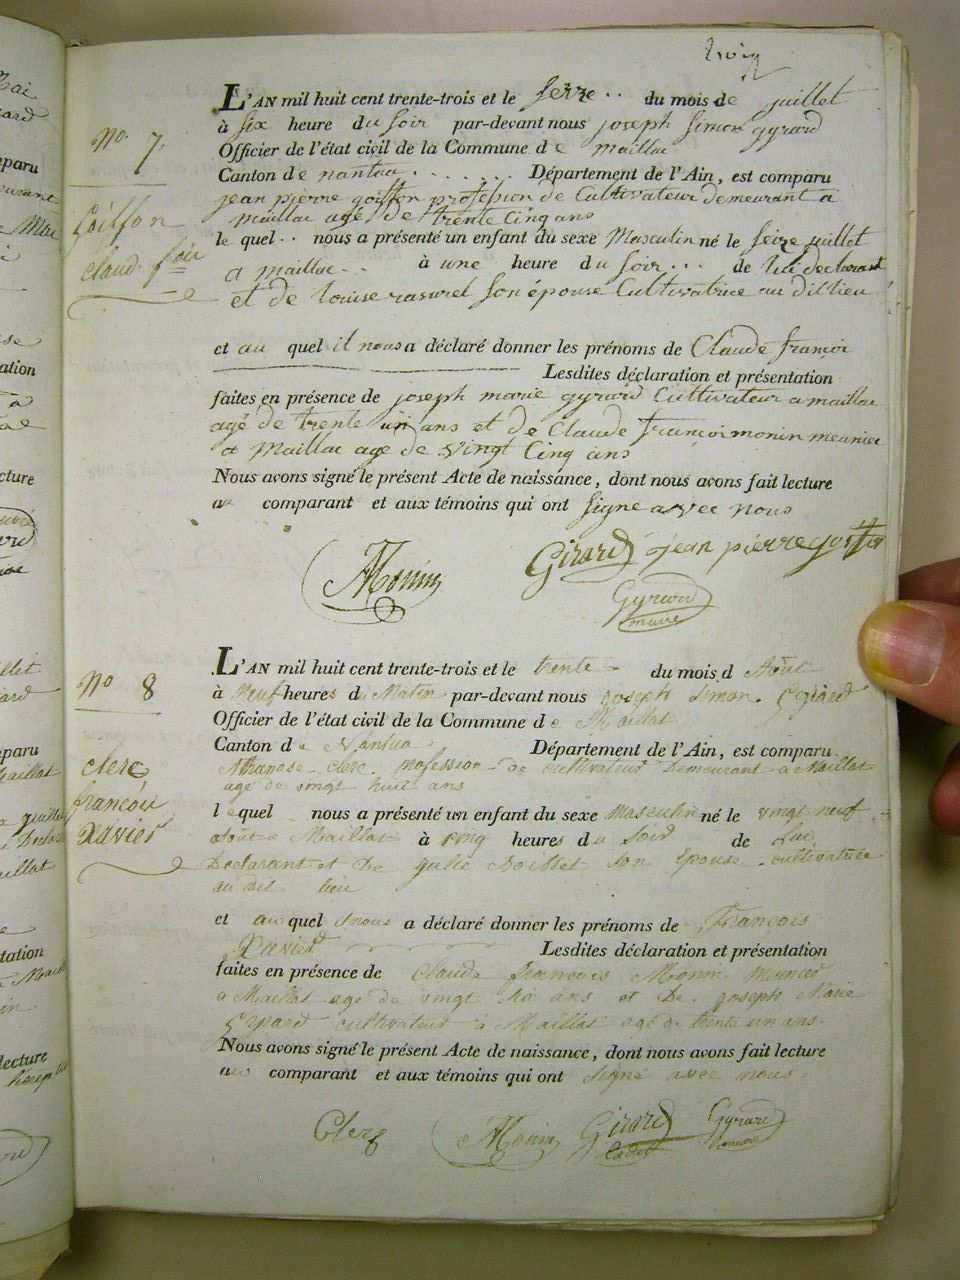 L'AN mil huit cent trente-trois et le seize du mois de juillet
à six heure du soir par-devant nous joseph simon gyrard
Officier de l'état civil de la Commune de maillac
Canton de nantua Département de l'Ain, est comparu
jean pierre goiffon profession de Cultivateur demeurant a
maillac agé de trente Cinq ans
le quel nous a présenté un enfant du sexe Masculin né le seize juillet
a maillac à une heure du soir de lui declarant
et de louise rasurel son épouse Cultivatrice au dit lieu
No. 7
Goiffon
claud. foi
et au quel il nous a déclaré donner les prénoms de Claude françoi
Lesdites déclaration et présentation
faites en présence de joseph marie gyrard Cultivateur a maillac
agé de trente un ans et de Claude françoi monin meunier
a Maillac agé de vingt Cinq ans
Nous avons signé le présent Acte de naissance, dont nous avons fait lecture
au comparant et aux témoins qui ont signe avec nous
Monin Girard jean pierre goiffon
Gyrard
maire
L'AN mil huit cent trente-trois et le trente du mois d Août
à Neuf heures d Matin par-devant nous joseph Simon Gyrard
Officier de l'état civil de la Commune de Maillat
Canton de Nantua Département de l'Ain, est comparu
Athanase clerc profession de cultivateur Demeurant à Maillat
age de vingt huit ans
lequel nous a présenté un enfant du sexe Masculin né le vingt neuf
août a Maillat à cinq heures du Soir de Lui
Declarant et De julie Boisset son Epouse cultivatrice
au dit lieu
No 8
clerc
françoi
Xavier
et au quel nous a déclaré donner les prénoms de François
Xavier Lesdites déclaration et présentation
faites en présence de Claude françois Monin Munier
a Maillat age de vingt six ans et De joseph Marie
Gyrard cultivateur à Maillat agé de trente un ans
Nous avons signé le présent Acte de naissance, dont nous avons fait lecture
au comparant et aux témoins qui ont signé avec nous
Clerc Monin Girard Gyrard
cadet maire